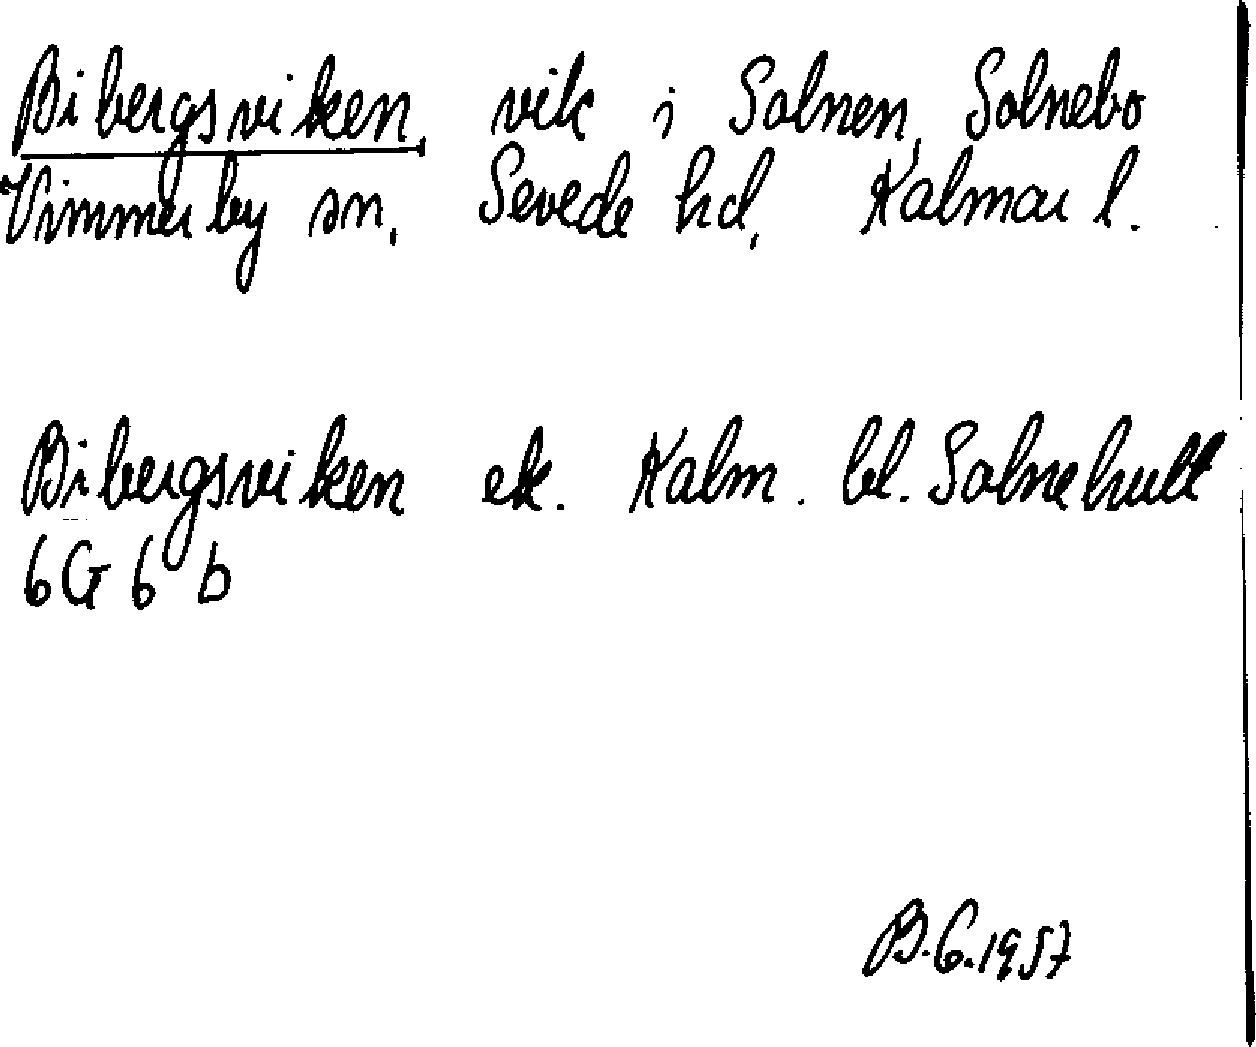 Bibergsviken, vik i Solnen, Solnebo
Vimmerby sn, Sevede hd, Kalmar l.
Bibergsviken ek. Kalm. bl. Solnehult
6G 6 b
B.G. 1957